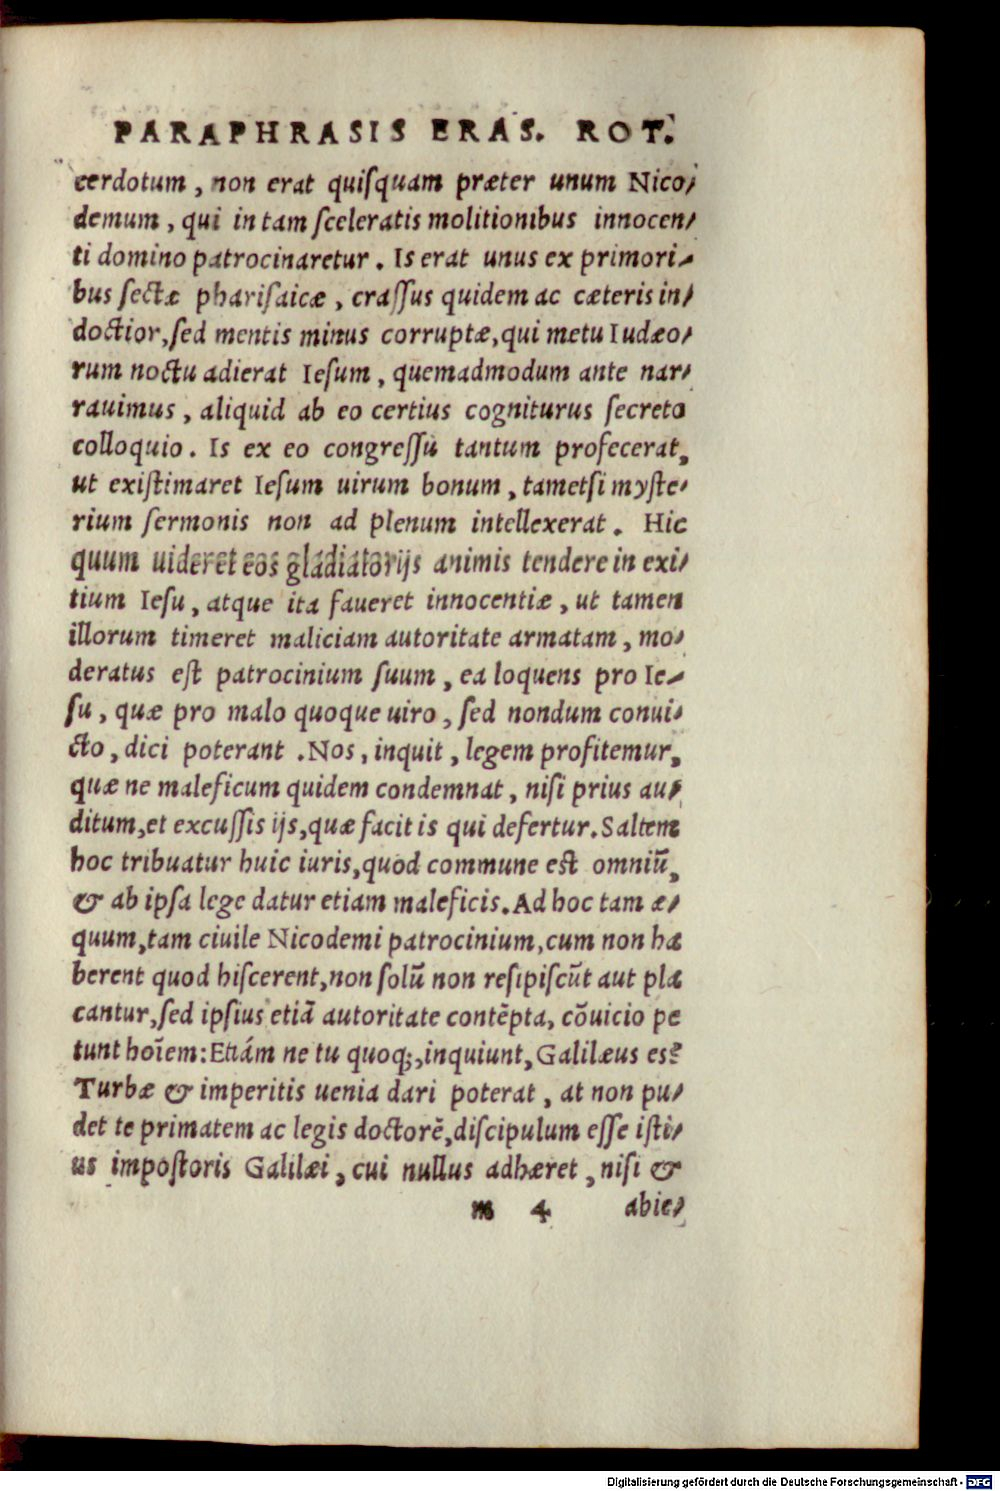 PARAPHRASIS ERAS. ROT.
cerdotum, non erat quiſquam præter unum Nico⸗
demum, qui in tam ſceleratis molitionibus innocen⸗
ti domino patrocinaretur. Is erat unus ex primori⸗
bus ſectæ phariſaicæ, craſſus quidem ac cæteris in⸗
doctior, ſed mentis minus corruptæ, qui metu Iudæo⸗
rum noctu adierat Ieſum, quemadmodum ante nar⸗
rauimus, aliquid ab eo certius cogniturus ſecreto
colloquio. Is ex eo congreſſu tantum profecerat,
ut exiſtimaret Ieſum uirum bonum, tametſi myſte⸗
rium ſermonis non ad plenum intellexerat. Hic
quum uideret eos gladiatorijs animis tendere in exi⸗
tium Ieſu, atque ita faueret innocentiæ, ut tamen
illorum timeret maliciam autoritate armatam, mo⸗
deratus eſt patrocinium ſuum, ea loquens pro Ie⸗
ſu, quæ pro malo quoque uiro, ſed nondum conui⸗
cto, dici poterant. Nos, inquit, legem profitemur,
quæ ne maleficum quidem condemnat, niſi prius au⸗
ditum, et excuſſis ijs, quæ facit is qui defertur. Saltem
hoc tribuatur huic iuris, quod commune eſt omniū,
& ab ipſa lege datur etiam maleficis. Ad hoc tam æ⸗
quum, tam ciuile Nicodemi patrocinium, cum non hæ
berent quod hiſcerent, non ſolū non reſipiſcūt aut plæ
cantur, ſed ipſius etiā autoritate contēpta, cōuicio pe
tunt hoīem: Etiám ne tu quoq;, inquiunt, Galilæus es?
Turbæ & imperitis uenia dari poterat, at non pu⸗
det te primatem ac legis doctorē, diſcipulum eſſe iſti⸗
us impoſtoris Galilæi, cui nullus adhæret, niſi &
m 4 abie⸗
Digitalisierung gefördert durch die Deutsche Forschungsgemeinschaft - DFG